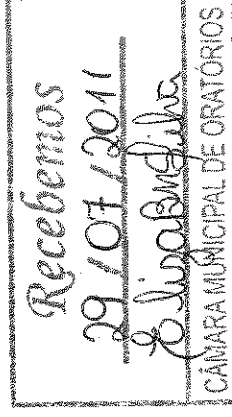 Recebemos
29 / 07 / 2011
CÂMARA MUNICIPAL DE ORATÓRIOS